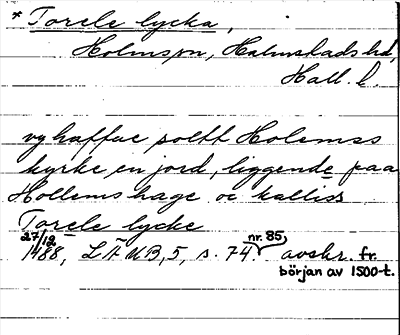 * Torele lycka,
Holmsjn, Halmstads hd,
Hall. l.
vy haffue soltt Holemss
kyrke, en jord, liggende paa
Hollems hage oc kalliss
Torele lycke
27/12 1488, LÄUB, 5, s. 74 nr. 85, avskr. fr.
början av 1500-t.